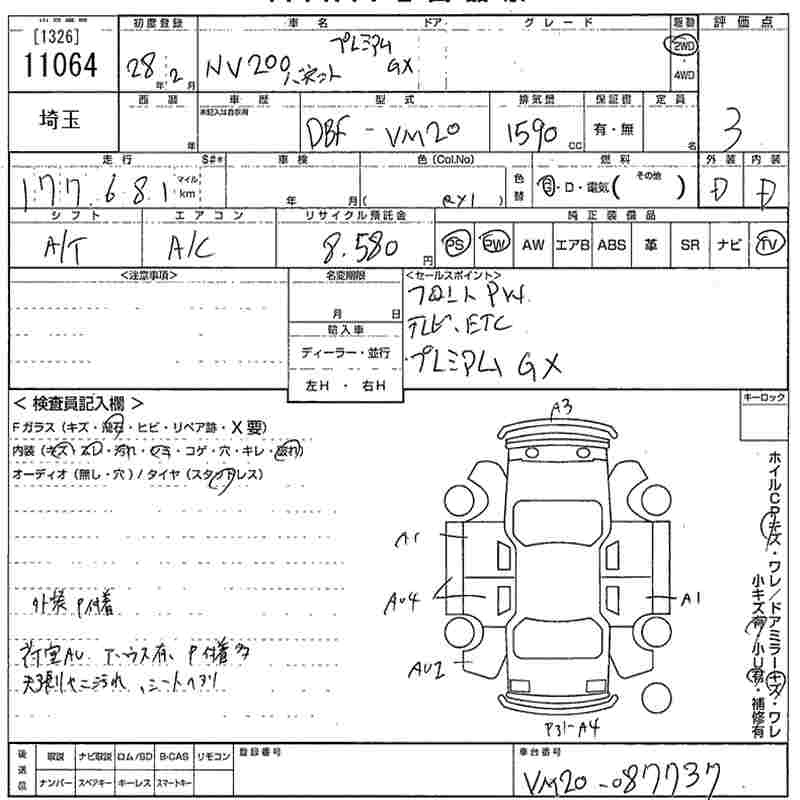 [1326]
11064
初度登録
車名
ドア
グレード
駆動
評価点
28年2月
NV200バネット
プレミアム
GX
2WD
4WD
3
埼玉
西暦
年
車歴
未記入は自家用
型式
DBF-VM20
排気量
1590 CC
保証書
有・無
定員
名
走行
S#*
177,681
マイル
km
車検
年 月
色(Col.No)
(RY1)
色替
燃料
G・D・電気( その他 )
外装
内装
D
D
シフト
A/T
エアコン
A/C
リサイクル預託金
8,580円
純正装備品
PS
PW
AW
エアB
ABS
革
SR
ナビ
TV
<注意事項>
名変期限
月 日
輸入車
ディーラー・並行
左H・右H
<セールスポイント>
フロントPW.
テレビ、ETC
プレミアムGX
<検査員記入欄>
Fガラス(キズ・飛石・ヒビ・リペア跡・X要)
内装(キズ・スレ・汚れ・シミ・コゲ・穴・キレ・破れ)
オーディオ(無し・穴)/タイヤ(スタッドレス)
外装 P付着
荷室AU
P付着多
天張りヤニ汚れ
キーロック
ホイルCPキズ・ワレ/ドアミラーキズ・ワレ
小キズ有・小U有・補修有
A3
A1
AU4
AU2
A1
P31-A4
後送品
取説
ナビ取説
ロム/SD
B-CAS
リモコン
ナンバー
スペアキー
キーレス
スマートキー
登録番号
車台番号
VM20-087737